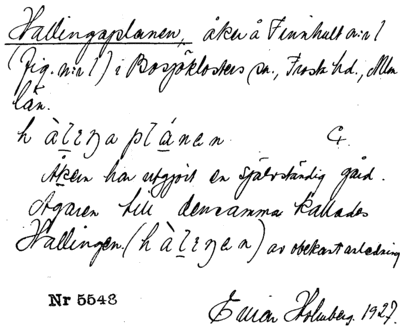 Hallingaplanen, åker å Finnhult n:r 1
(fig. n:r 1) i Bosjöklosters sn., Frosta hd., Mlm
län.
h à l i ŋ a p l á n e n. C.
Åkern har utgjort en självständig gård.
Ägaren till densamma kallades
Hallingen. (h à l i ŋ e n) av obekant anledning
Nr 5543
Einar Holmberg. 1927.